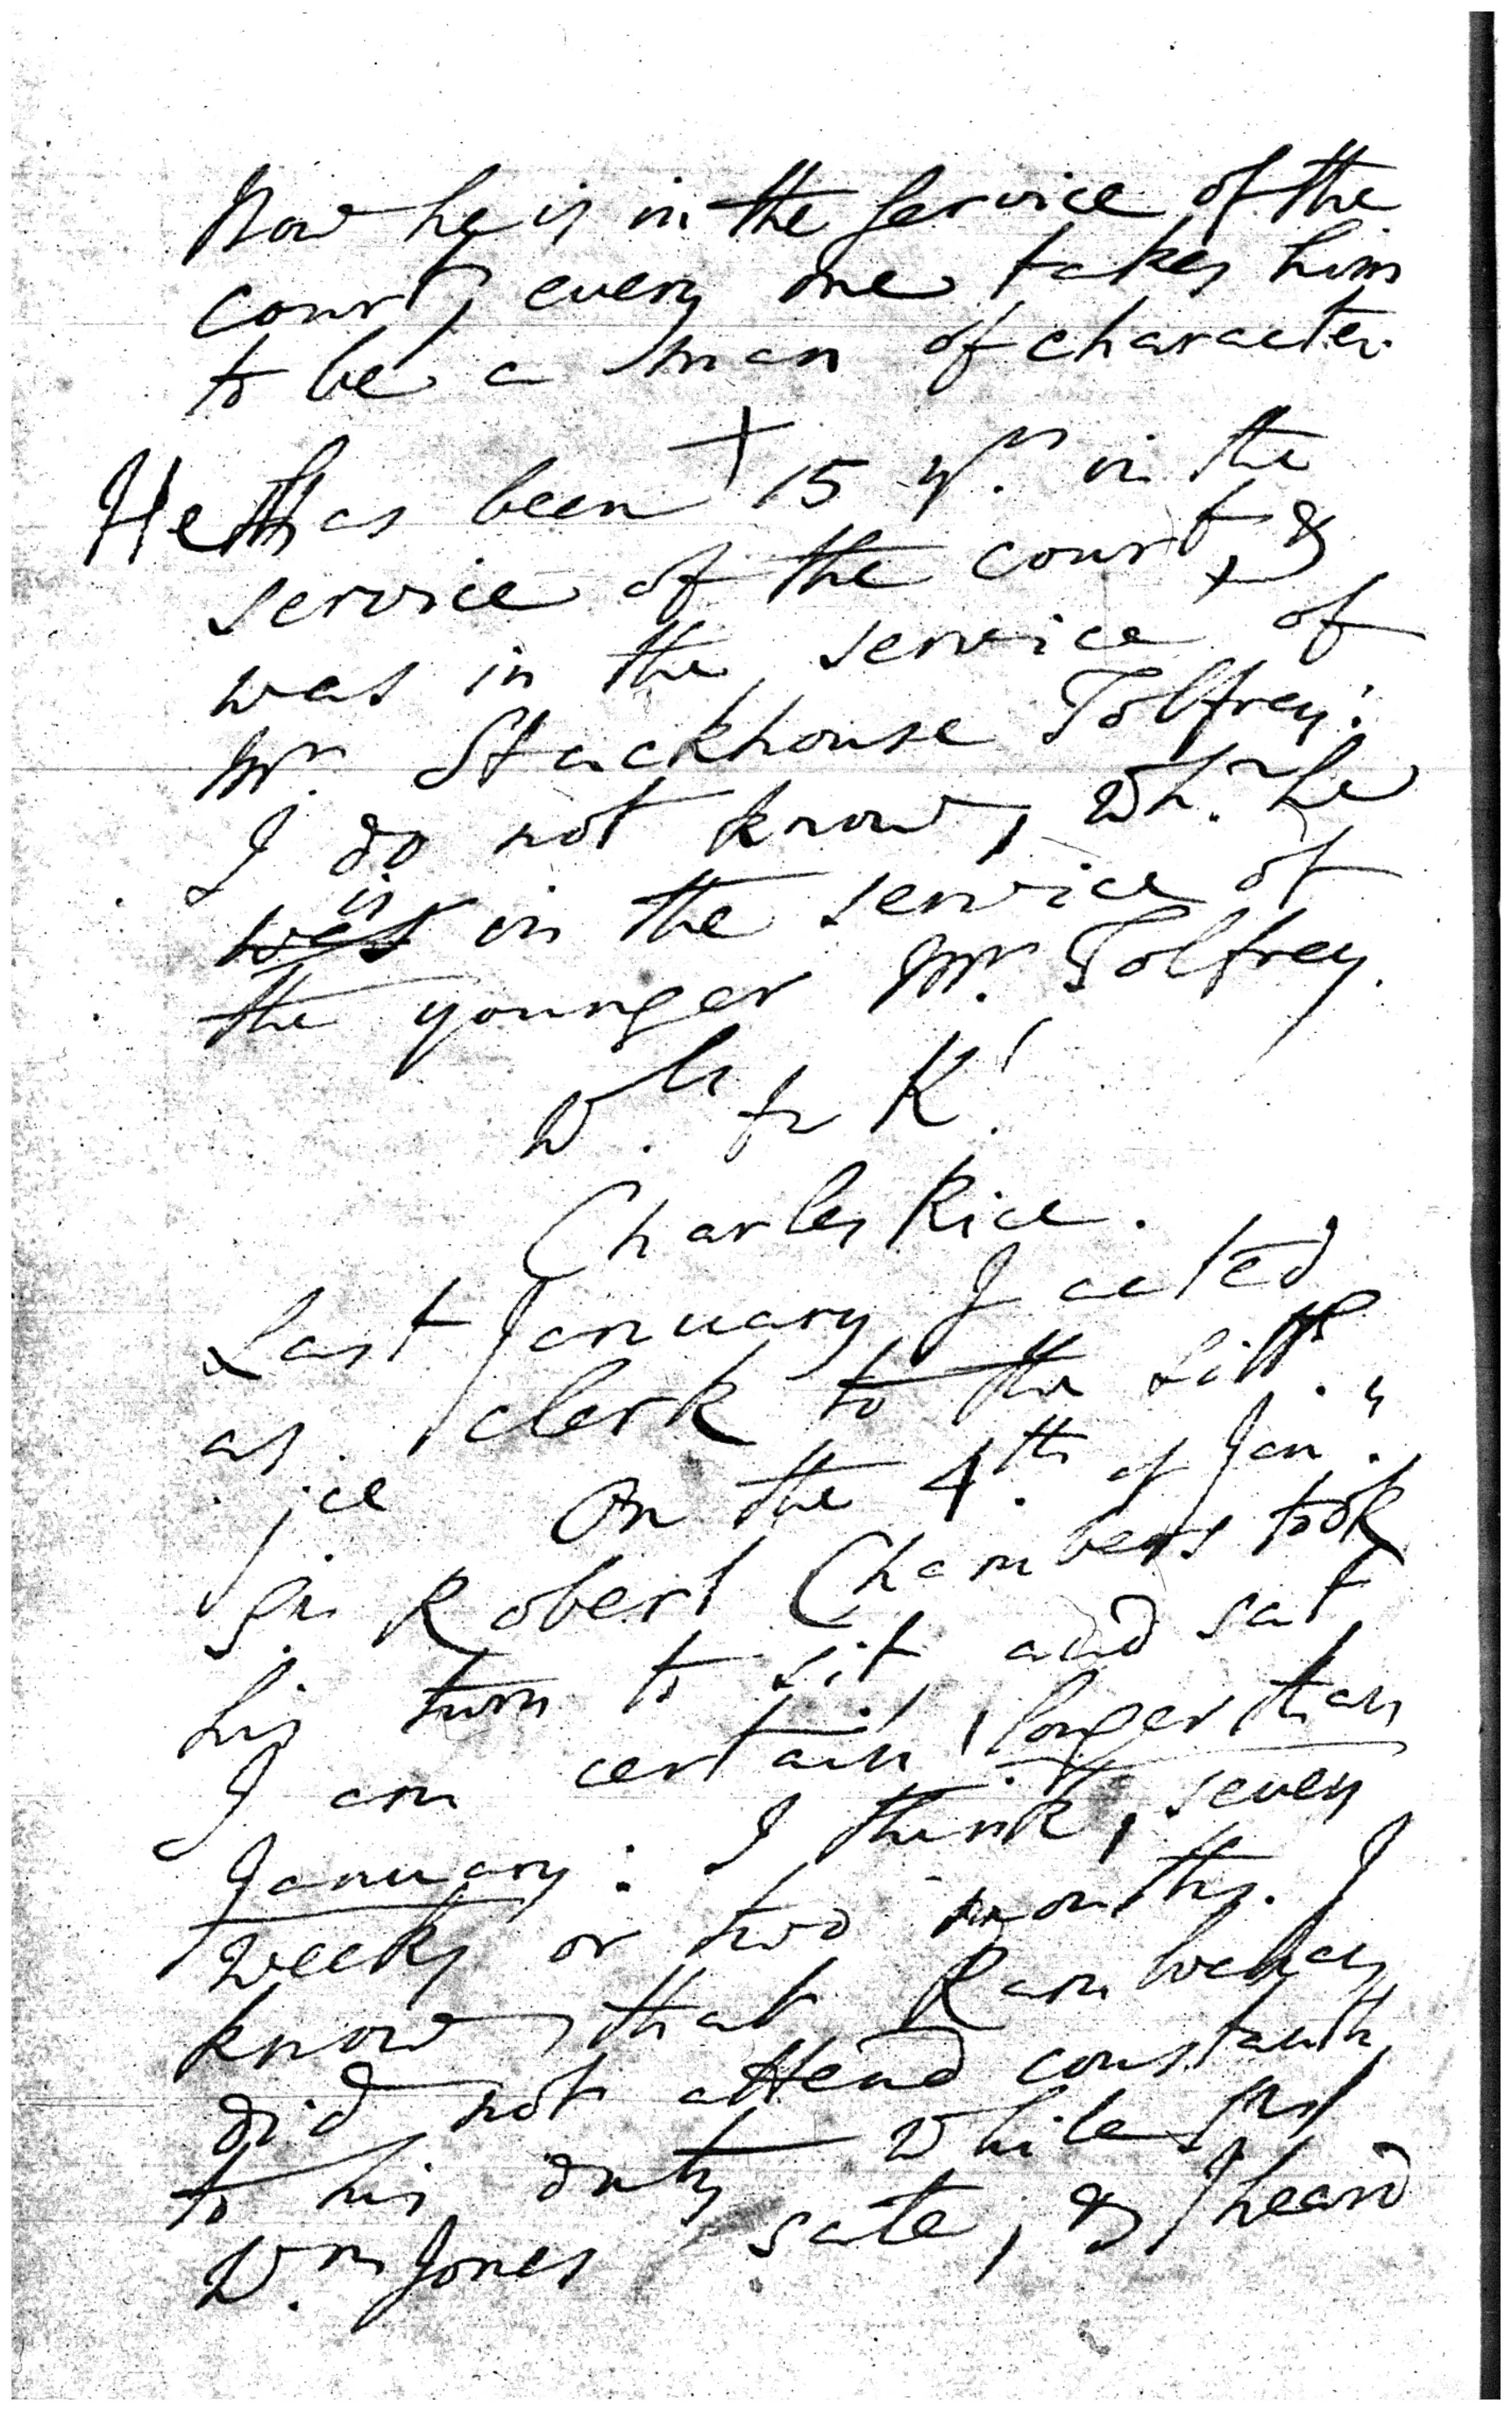 Now he is in the service of the
court, every one takes him
to be a man of character.
He has been + 15 yrs. in the
service of the court, &
was in the service of
Mr. Stackhouse Tolfrey:
I do not know, whr. he
was is in the service of
the younger Mr. Tolfrey.
Ws. fr K!
Charles Rice.
Last January I acted
as clerk to the sittg.
jce On the 4th. of Jany.
Sir Robert Chambers took
his turn to sit, and sat,
I am certain, longer than
January: I think, seven
weeks or two months. I
know, that Ram
did not attend constantly
to his duty while Sir
Wm. Jones sate, & I heard